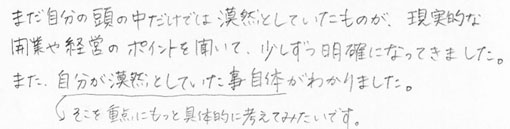 まだ自分の頭の中だけでは漠然としていたものが、現実的な
開業や経営のポイントを聞いて、少しずつ明確になってきました。
また、自分が漠然としていた事自体がわかりました。
そこを重点にもっと具体的に考えてみたいです。